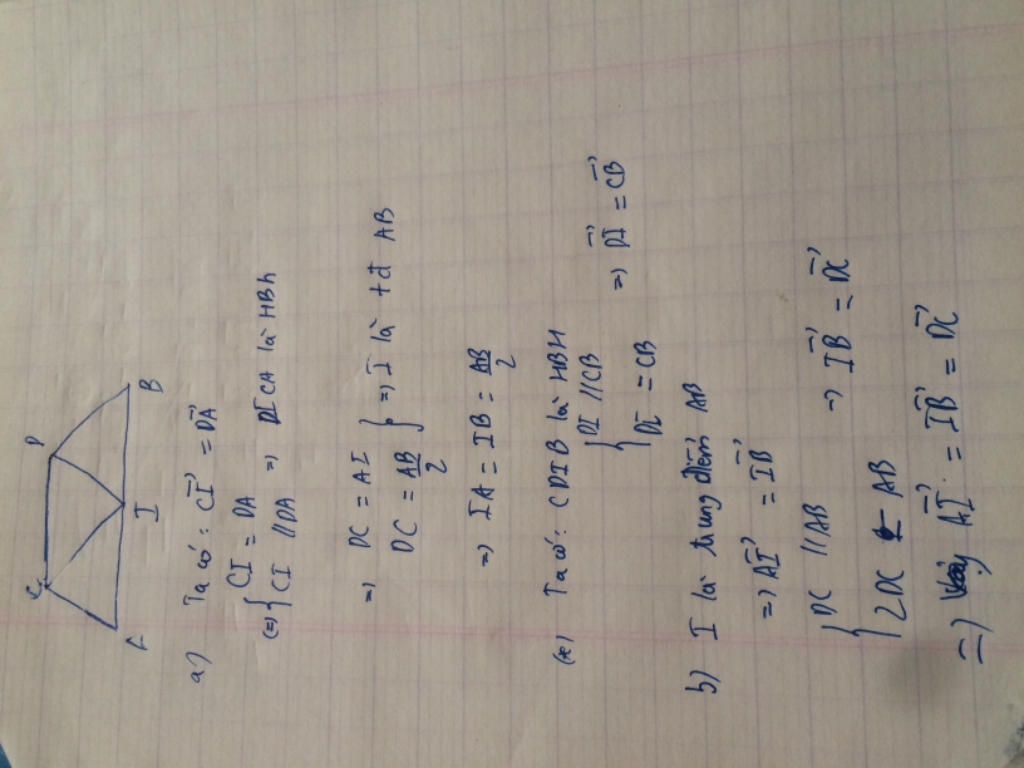 C D
A I B
a) Ta có: CI⃗ = DA⃗
(=) { CI = DA
CI // DA => DICA là HBh
=> DC = AI
DC = AB/2 } => I là tđ AB
=> IA = IB = AB/2
(*) Ta có: CDIB là HBH
{ DI // CB
DI = CB => DI⃗ = CB⃗
b) I là trung điểm AB
=> AI⃗ = IB⃗
{ DC // AB
2DC = AB => IB⃗ = DC⃗
=) Vậy AI⃗ = IB⃗ = DC⃗